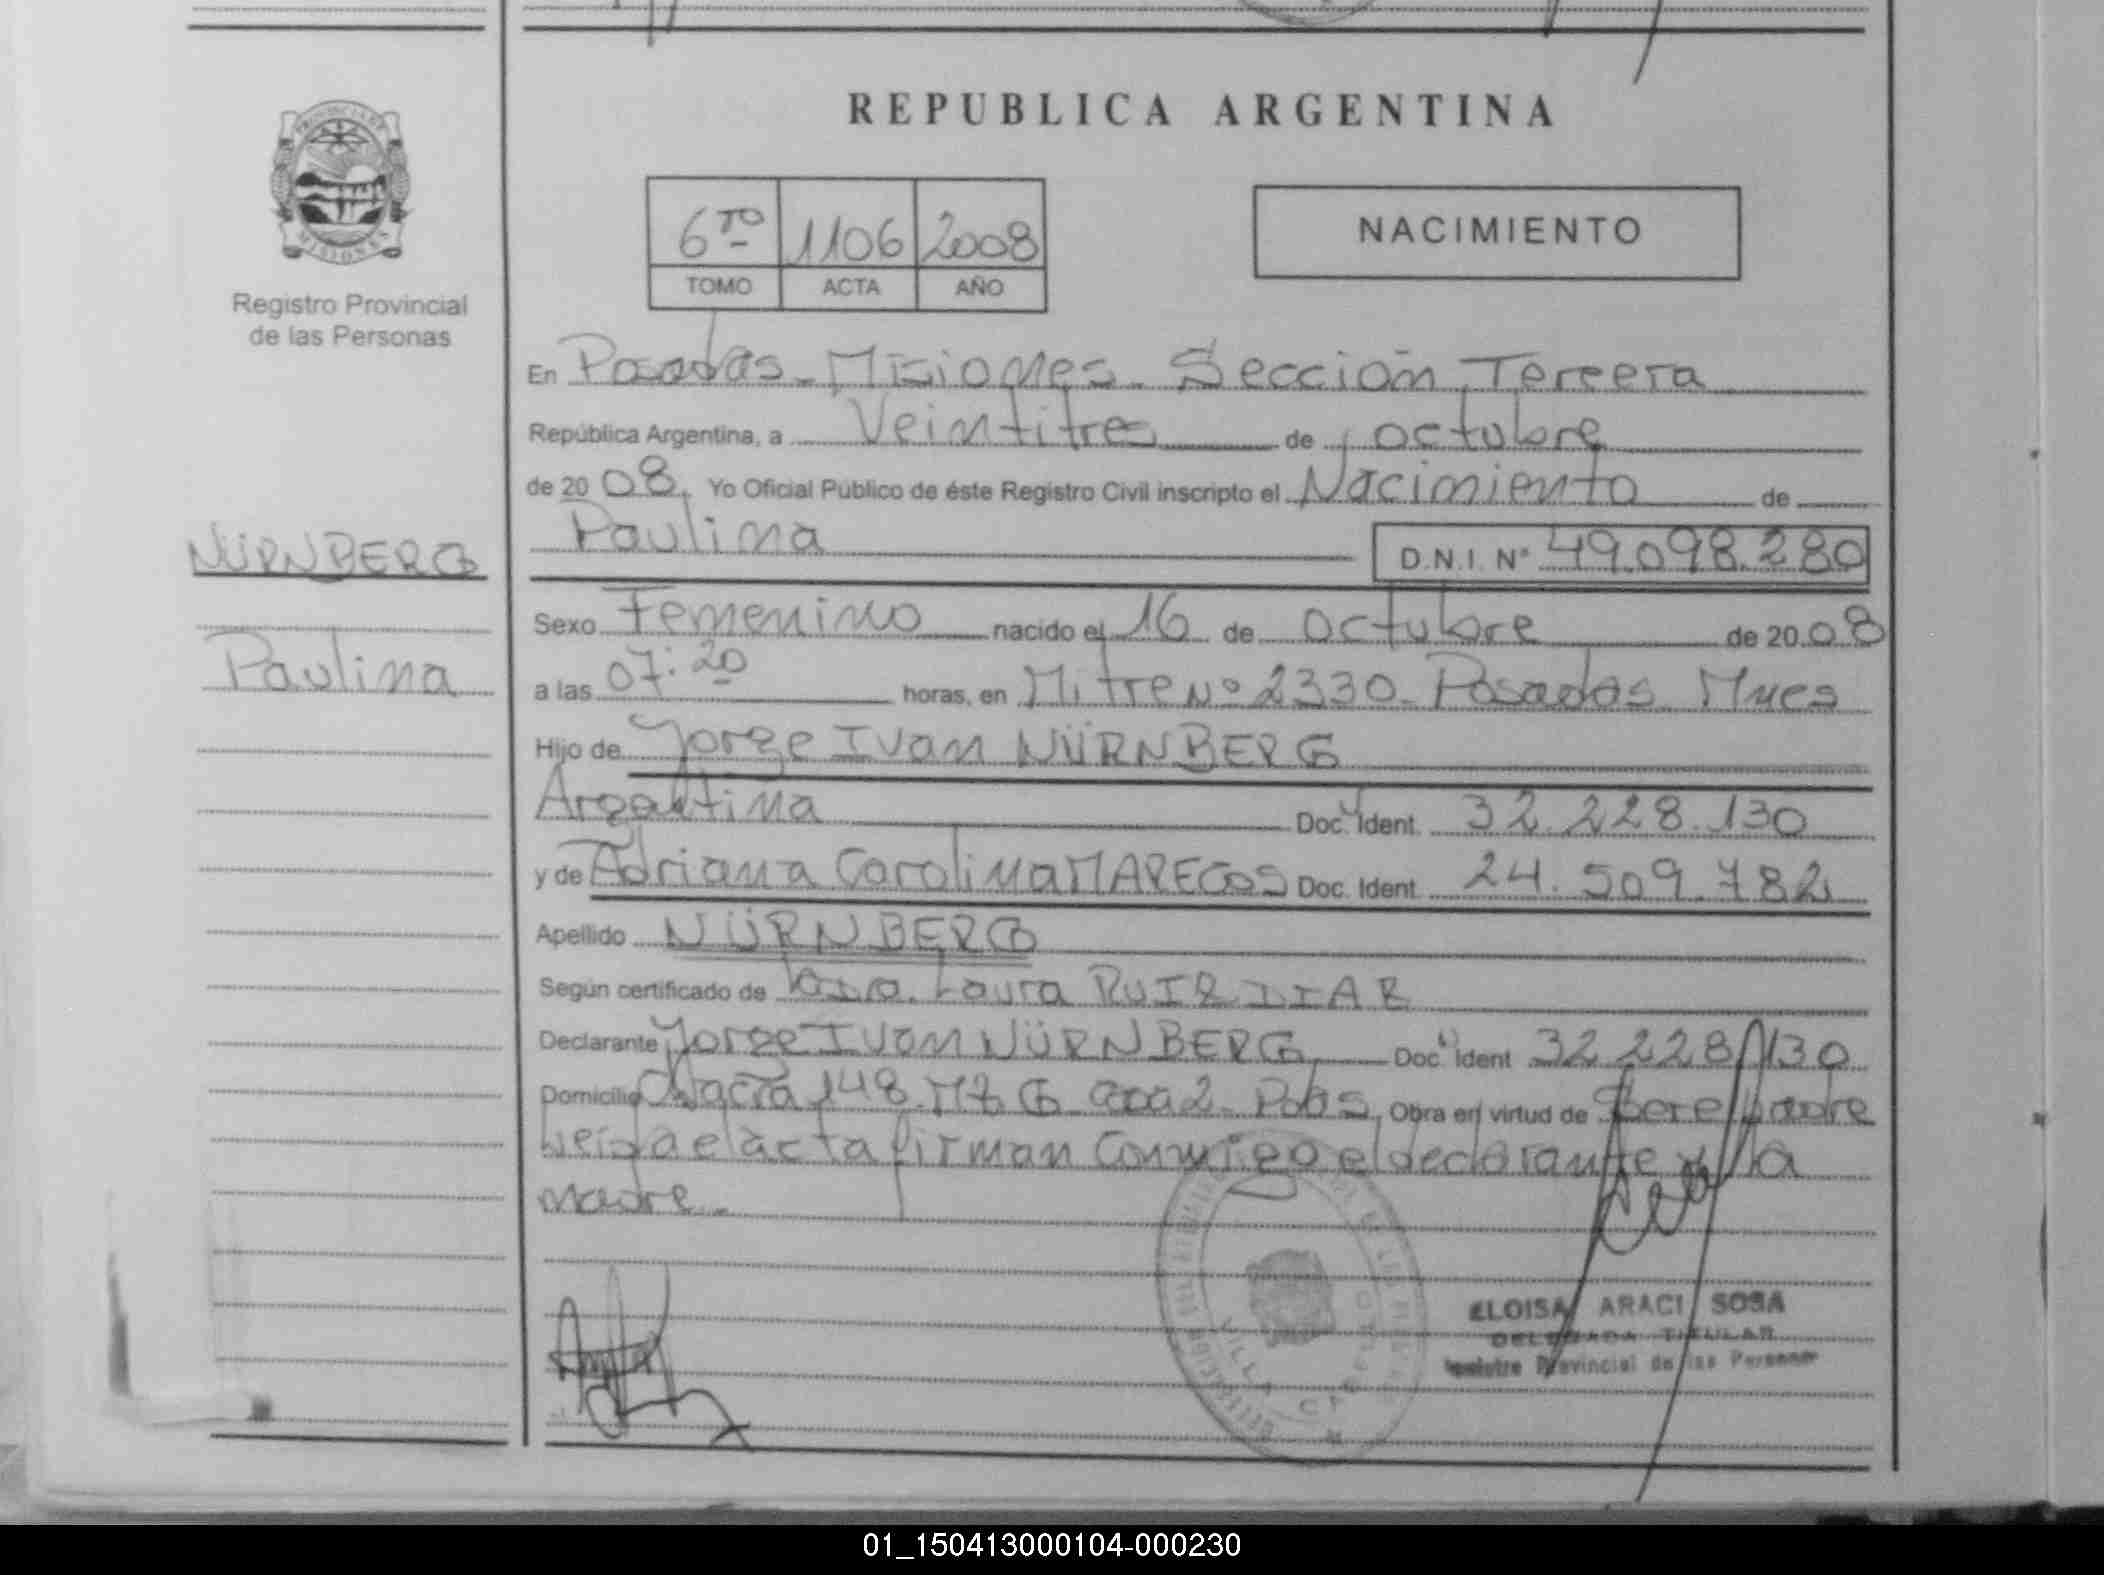 REPUBLICA ARGENTINA
PROVINCIA DE
MISIONES
Registro Provincial
de las Personas
6TO 1106 2008
TOMO ACTA AÑO
NACIMIENTO
En Posadas - Misiones - Sección Tercera
República Argentina, a Veintitres de octubre
de 2008. Yo Oficial Público de éste Registro Civil inscripto el Nacimiento de
Paulina D.N.I. Nº 49.098.280
NÜRNBERG
Paulina
Sexo Femenino nacido el 16 de Octubre de 2008
a las 07:20 horas, en Mitre Nº 2330 - Posadas - Mnes
Hijo de Jorge Ivan NÜRNBERG
Argentina Doc. Ident. 32.228.130
y de Adriana Carolina MARECOS Doc. Ident. 24.509.782
Apellido NÜRNBERG
Según certificado de Laura RUIZ DIAZ
Declarante Jorge Ivan NÜRNBERG Doc. Ident 32.228.130
Domicilio Chacra 148 Mz G 2 Pdas Obra en virtud de Ser el padre
Leída el acta firman Conmigo el declarante y la
madre -
VILLA CABELLO
ELOISA ARACI SOSA
DELEGADA TITULAR
Registro Provincial de las Personas
01_150413000104-000230